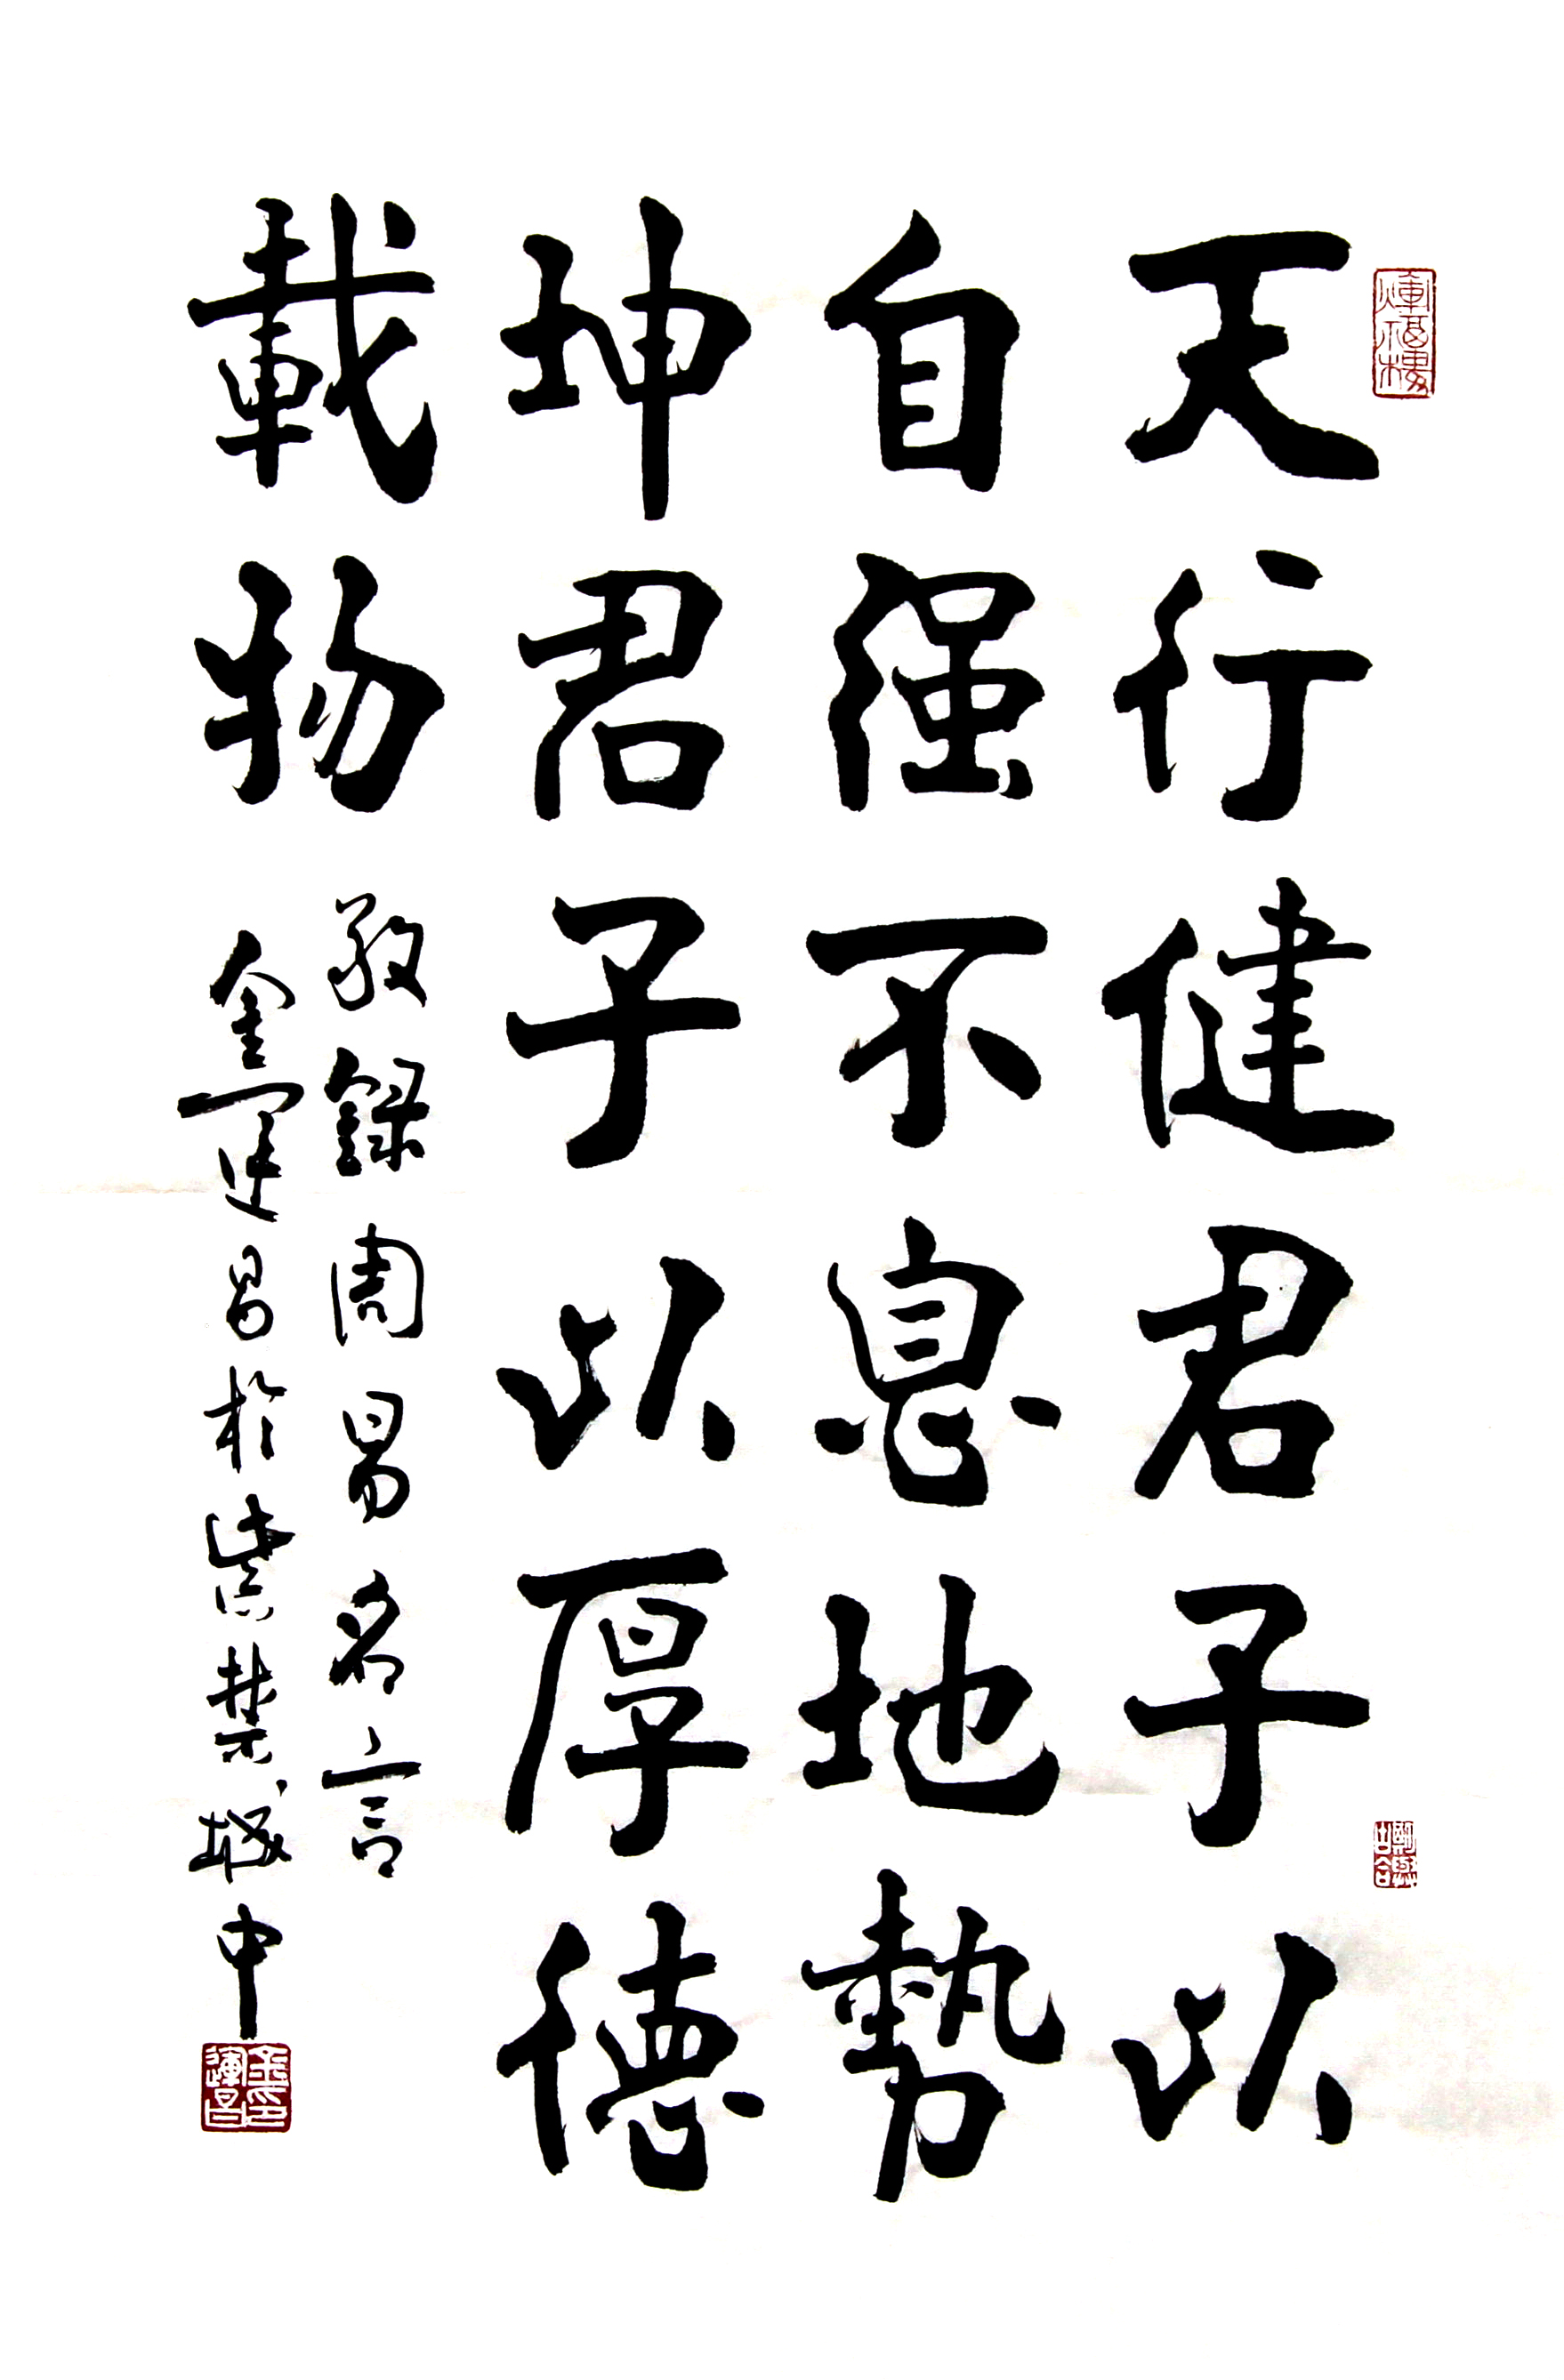 天行健君子以
自强不息地勢
坤君子以厚德
載物
敬錄周易名言
金運昌於紫禁城中
金印運昌